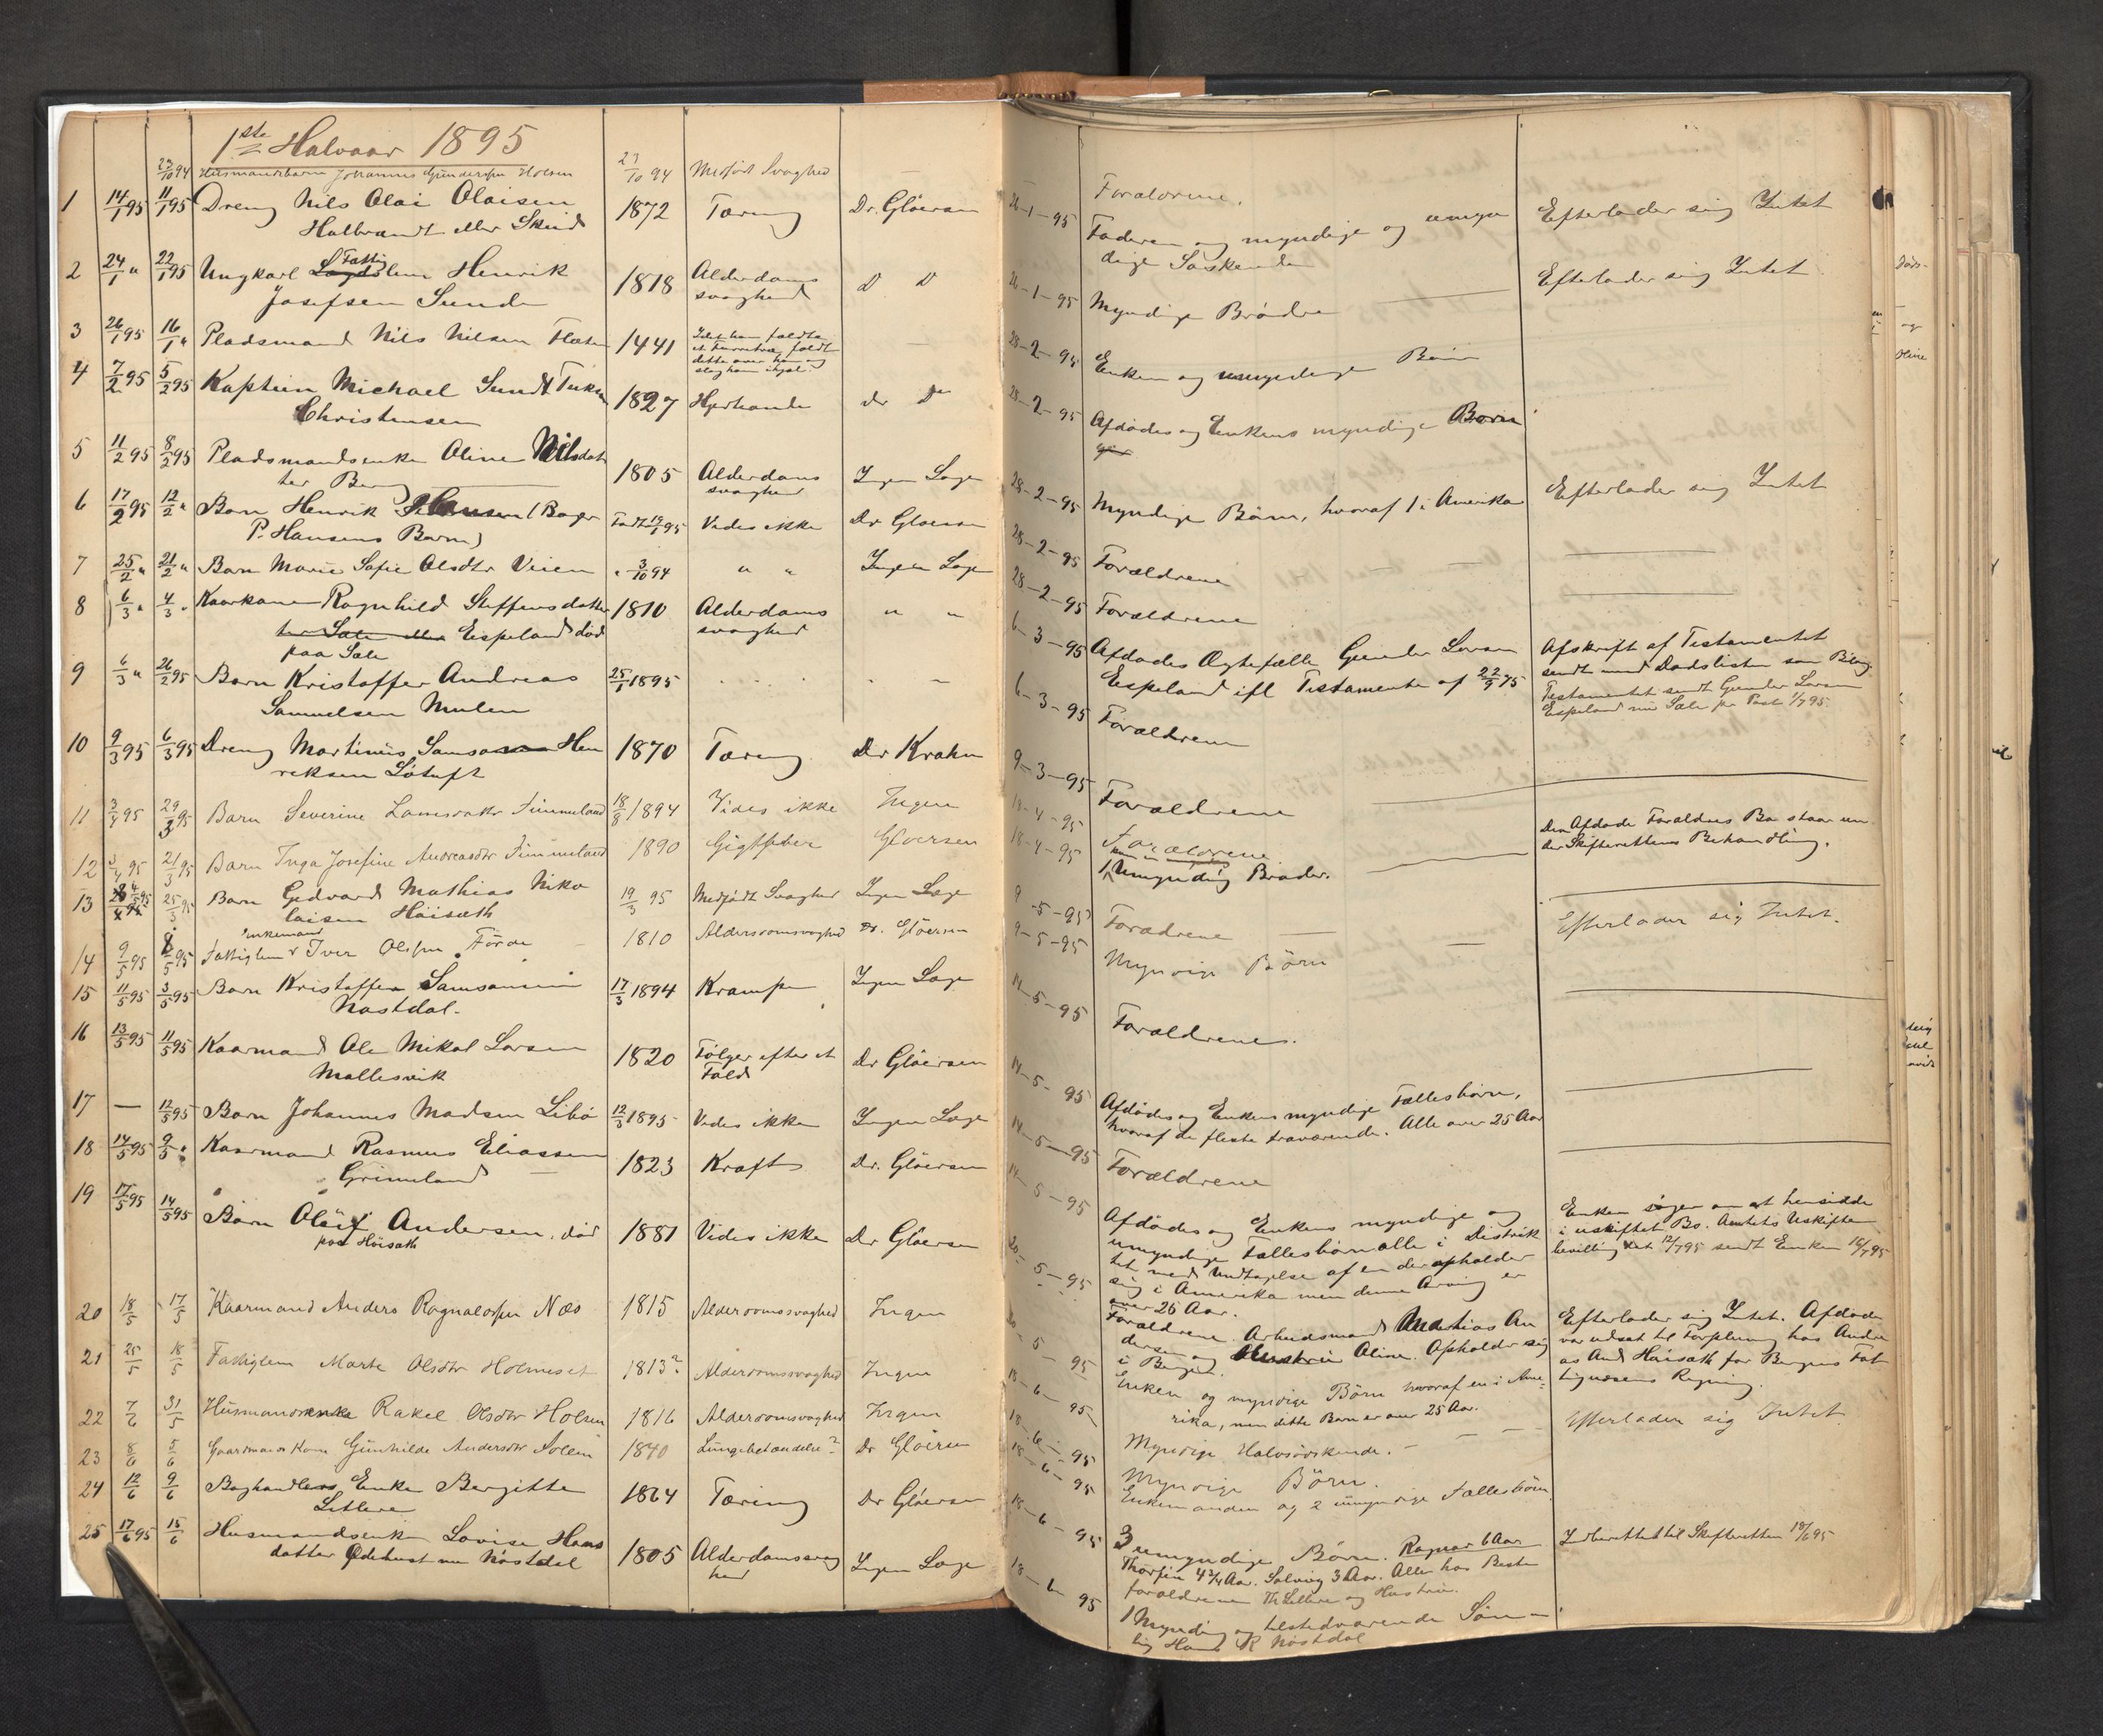 1ste Halvaar 1895
23/10 94 Husmandsbarn Johannes Gunderssen Holsen 23/10 94 Medfødt Svaghed —
1 14/1 95 11/1 95 Dreng Nils Olai Olaisen 1872 Tæring Dr. Gløersen
Halbrandt eller Skeid
2 24/1 " 22/1 95 Ungkarl Fattiglem Henrik 1818 Alderdoms D D
Josefsen Sunde svaghed
3 26/1 95 16/1 " Pladsmand Nils Nilsen 1441 Idet han fældte —
et Furutræ faldt
dette over ham og
slog ham ihjel.
4 7/2 95 5/2 95 Kaptein Michael Sundt Tuksen 1827 Hjertεonde Dr D
Christensen
5 11/2 95 8/2 95 Pladsmandsenke Oline Nilsdat 1805 Alderdoms Ingen Læge
ter Berg svaghed
6 17/2 95 12/2 " Barn Henrik Hansen (Bager Født 19/1 95 Vides ikke Dr Gløersen
P. Hansens Barn)
7 25/2 " 21/2 " Barn Marie Sofie Olsdtr Veien " 3/10 94 " " Ingen Læge
8 6/3 " 4/3 " Kaarkone Ragnhild Steffensdatter 1810 Alderdoms " "
ter Sæle eller Espeland død svaghed
paa Sæle
9 6/3 " 26/2 95 Barn Kristoffer Andreas 25/1 1895 " "
Samuelsen Mulen
10 9/3 95 6/3 95 Dreng Martinus Samson Hen 1870 Tæring Dr Krahn
riksen Løtuft
11 3/4 95 29/3 95 Barn Severine Larsdatr Fimmeland 18/8 1894 Vides ikke Ingen
12 3/4 95 21/3 95 Barn Inga Josefine Andreasdtr Fimmeland 1890 Gigtfeber Gløersen
13 4/5 95 25/3 95 Barn Gedvard Mathias Niko 19/3 95 Medfødt Svaghed Ingen Læge
laisen Høisæth
Enkemand
14 9/5 95 8/5 95 Fattiglem Iver Olssen Førde 1810 Alderdomssvaghed Dr. Gløersen
15 11/5 95 3/5 95 Barn Kristoffer Samsonsen 17/3 1894 Krampe Ingen Læge
Nøstdal.
16 13/5 95 11/5 95 Kaarmand Ole Mikal Larsen 1820 Følger efter et Dr Gløersen
Mallesvik Fald
17 — 12/5 95 Barn Johannes Madsen Libø 12/3 1895 Vides ikke Ingen Læge
18 14/5 95 9/5 " Kaarmand Rasmus Eliassen 1823 Kræft Dr. Gløersen
Grimeland
19 17/5 95 14/5 95 Barn Oluf Andersen, død 1881 Vides ikke Dr Gløersen
paa Høisæth
20 18/5 17/5 Kaarmand Anders Ragnaldssen Næs 1815 Alderdomssvaghed Ingen
21 25/5 18/5 Fattiglem Marte Olsdtr Holmeset 1813? Alderdomssvaghed Ingen
22 7/6 31/5 Husmandsenke Rakel Olsdtr Holsen 1816 Alderdomssvaghed Ingen
23 8/6 5/6 Gaardmandskone Gunhilde Andersdtr Solem 1840 Lungebetændelse? Dr Gløersen
24 12/6 9/6 Boghandlers Enke Bergitte 1864 Tæring Dr Gløersen
Litlere
25 17/6 95 15/6 Husmandsenke Lovise Hans 1805 Alderdomssvag Ingen Læge
datter Ødehust nu Nøstdal hed
Forældrene.
26-1-95 Faderen og myndige og umyn Efterlader sig Intet
dige Søskende
26-1-95 Myndige Brødre Efterlader sig Intet
28-2-95 Enken og umyndige Børn
28-2-95 Afdødes og Enkens myndige Børn
28-2-95 Myndige Børn, hvoraf 1 i Amerika Efterlader sig Intet
28-2-95 Forældrene
28-2-95 Forældrene
6-3-95 Afdødes Ægtefælle Gunder Larsen Afskrift af Testamentet
Espeland ifl Testamente af 22/9 75 sendt med Dødslisten som Bilag.
Testamentet sendt Gunder Larsen
Espeland nu Sæle pr Post 1/7 95
6-3-95 Forældrene
9-3-95 Forældrene
18-4-95 Forældrene Den Afdøde Forældres Bo staar un
der Skifterettens Behandling.
18-4-95 1 Umyndig Broder.
9-5-95 Forældrene
9-5-95 Myndige Børn Efterlader sig Intet.
14-5-95 Forældrene.
14-5-95 Afdødes og Enkens myndige Fællesbørn,
hvoraf de fleste fraværende. Alle over 25 Aar
14-5-95 Forældrene
14-5-95 Afdødes og Enkens myndige og Enken søger om at hensidde
umyndige Fællesbørn alle i Distrik i uskiftet Bo. Amtets Uskifte
tet med Undtagelse af en der opholder bevilling dat 12/7 95 sendt Enken 16/7 95
sig i Amerika men denne Arving er
over 25 Aar.
20-5-95 Forældrene Arbeidsmand Mathias An Efterlader sig Intet. Afdøde
dersen og Hustru Oline. Opholder sig var udsat til Forpleining hos Andre
i Bergen. as And Høisæth for Bergens Fat
tigvæsens Regning.
20-5-95 Enken og myndige Børn hvoraf en i Ame-
rika, men dette Barn er over 25 Aar.
18-6-95 Myndige Halvsødskende. — — — Efterlader sig Intet.
18-6-95 Myndige Børn.
18-6-95 Enkemanden og 2 umyndige Fællesbørn
18-6-95 3 umyndige Børn. Ragnar 6 Aar Indberettet til Skifteretten 18/6 95
Thorfin 4 3/4 Aar. Solveig 3 Aar. Alle hos Beste
forældrene Th Litlere og Hustru.
18-6-95 1 Myndig og tilstedværende Søn
lig Hans R Nøstdal